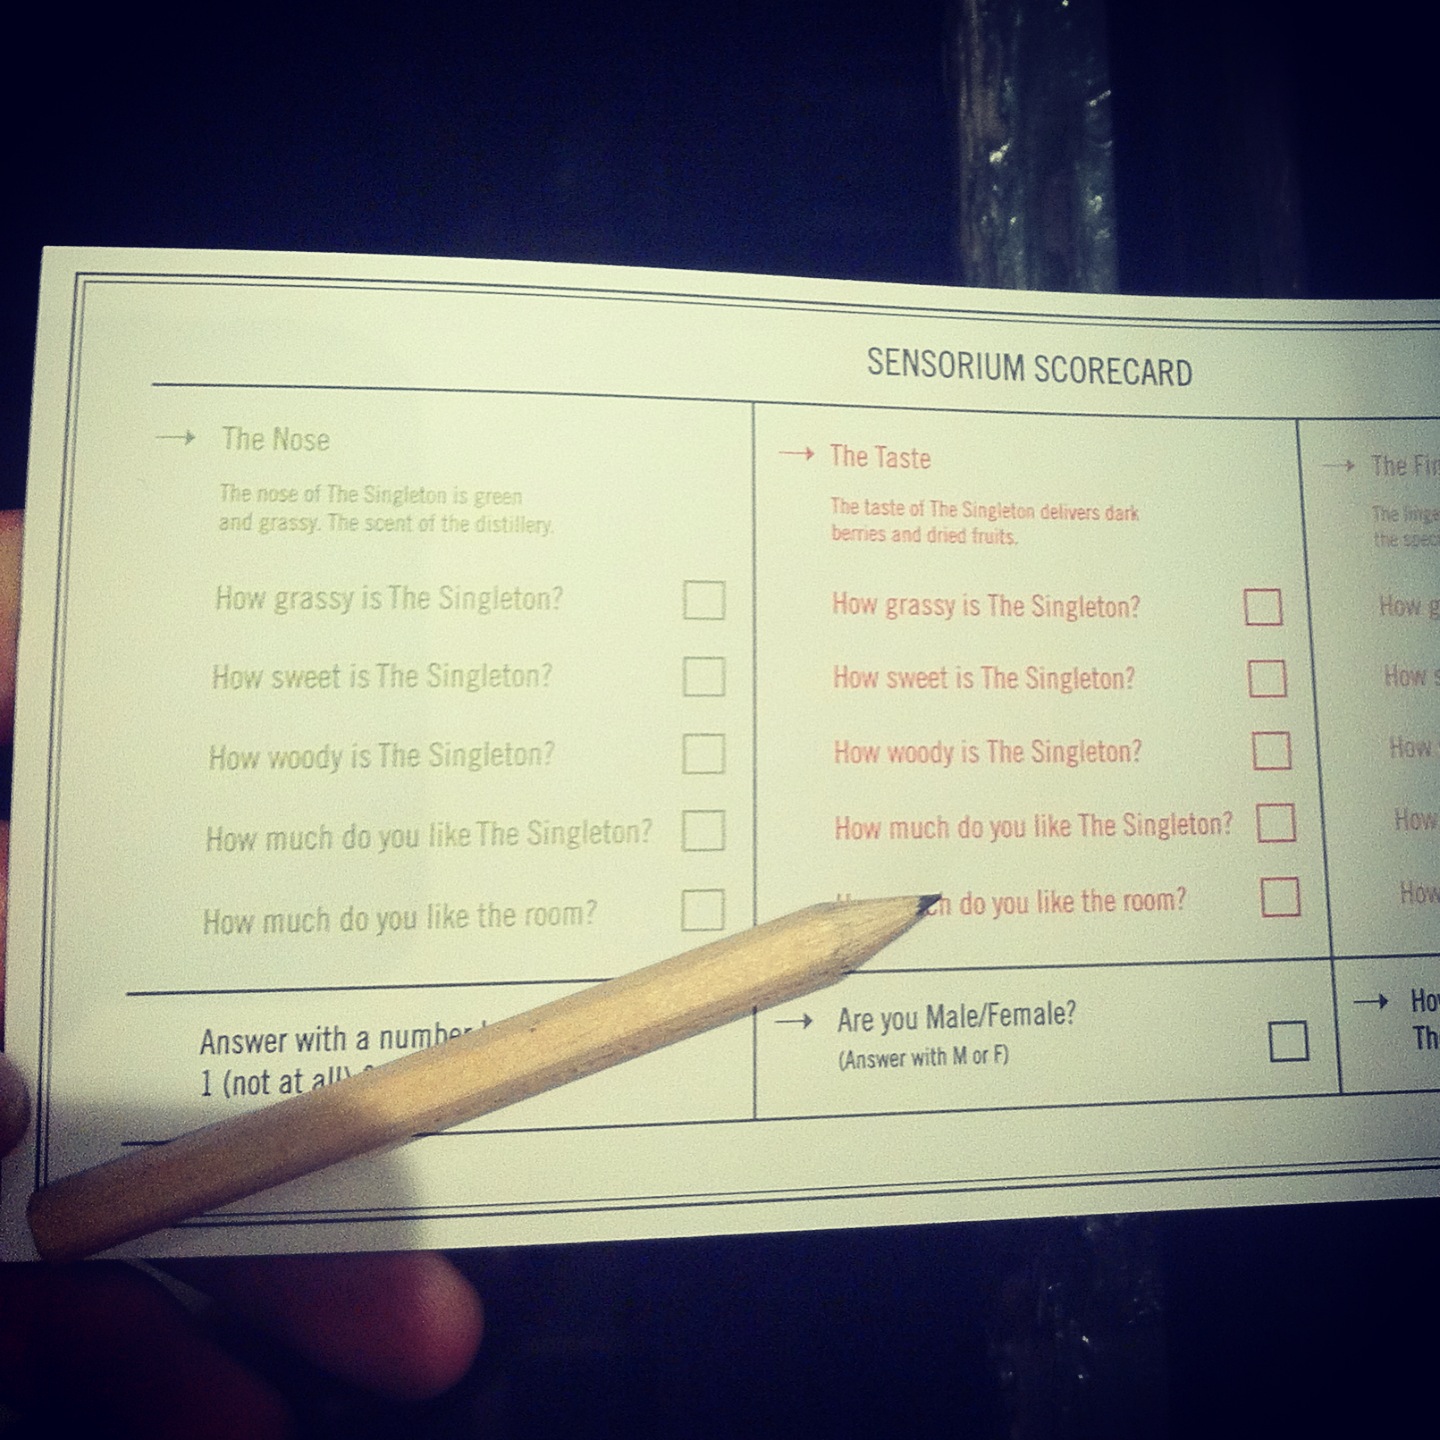 SENSORIUM SCORECARD
→ The Nose
The nose of The Singleton is green
and grassy. The scent of the distillery.
How grassy is The Singleton?
How sweet is The Singleton?
How woody is The Singleton?
How much do you like The Singleton?
How much do you like the room?
Answer with a number
1 (not at all)
→ The Taste
The taste of The Singleton delivers dark
berries and dried fruits.
How grassy is The Singleton?
How sweet is The Singleton?
How woody is The Singleton?
How much do you like The Singleton?
do you like the room?
→ Are you Male/Female?
(Answer with M or F)
→ The
The
the
How
How
How
How
How
→